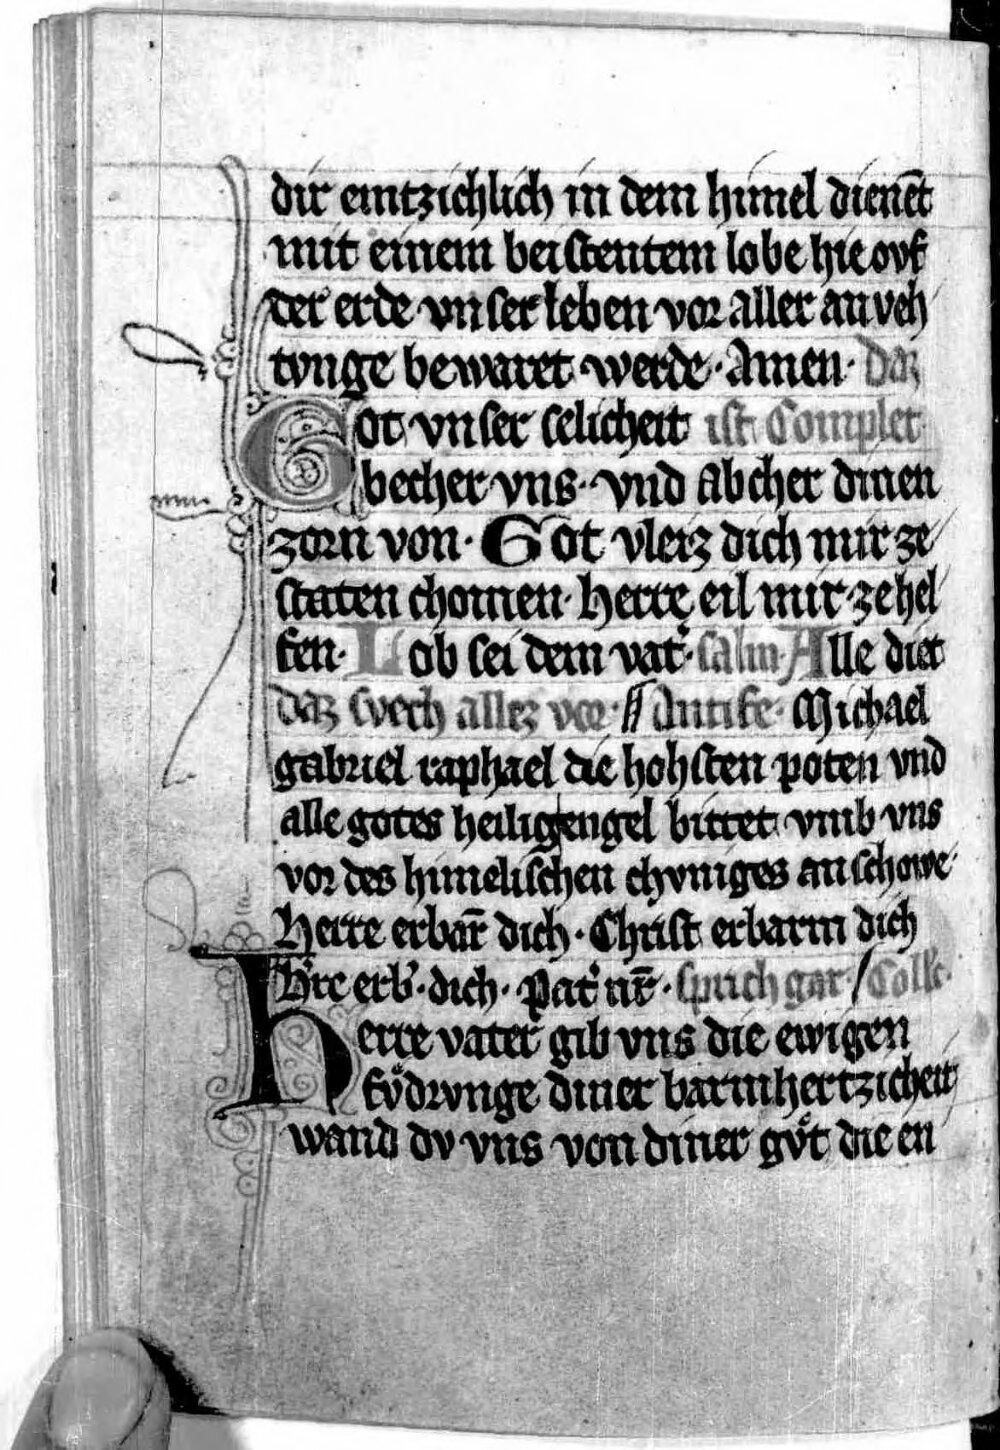 dir emtzichlich in dem himel dienēt
mit einem beistentem lobe hie ovf
der erde vnser leben vor aller anveh
tvnge bewaret werde · Amen · Daz
Got vnser selicheit ist Complet
becher vns · vnd abcher dinen
zorn von · Got vleiz dich mir ze
staten chomen · herre eil mir ze hel
fen · Lob sei dem vat͛ · salm · Alle diet
daz svech allez vor · Antife · Michael
gabriel raphael die hohsten poten vnd
alle gotes heiligengel bittet vmb vns
vor des himelischen chvniges anschowe ·
Herre erbar̄ dich · Christ erbarm dich
h͛re erb͛ · dich · Pat͛ nr̄ · sprich gar / Coll͛c ·
Herre vater gib vns die ewigen
fvͦdrvnge diner barmhertzicheit
wand dv vns von diner gvͦt die en